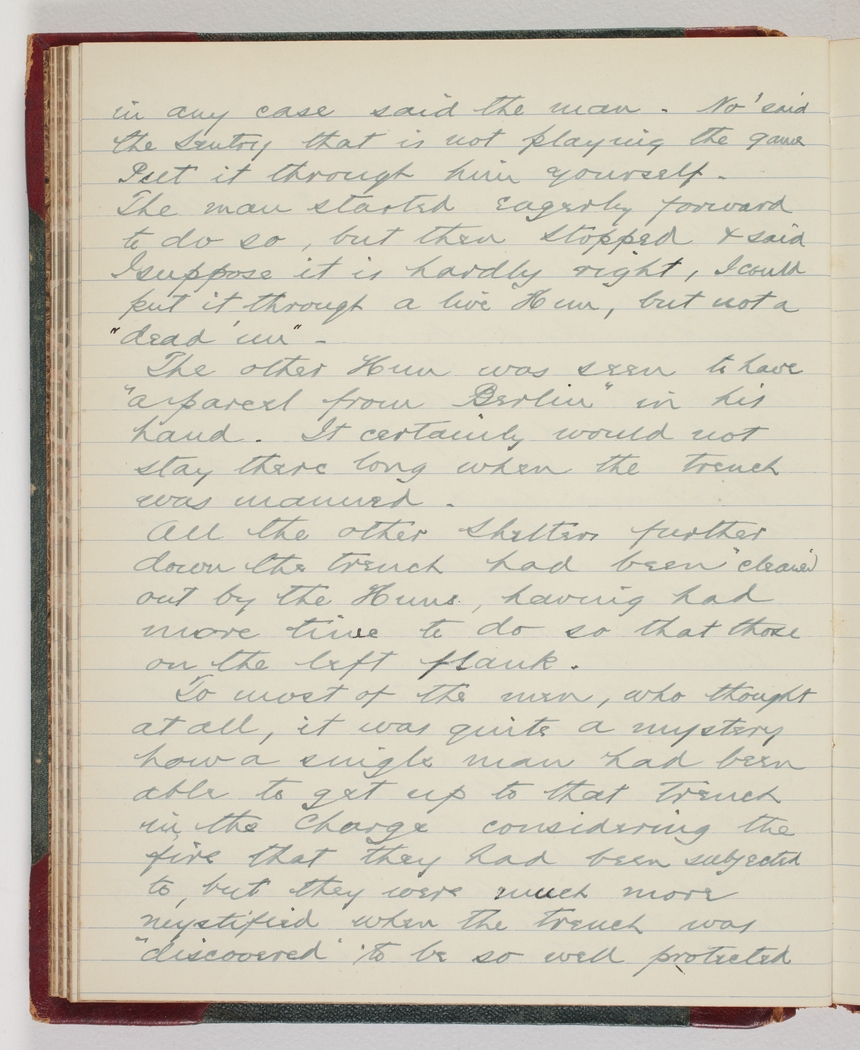 in any case said the man. No' said
the Sentry that is not playing the game
Put it through him yourself.
The man started eagerly forward
to do so, but then stopped & said
I suppose it is hardly right, I could
put it through a live Hun, but not a
"dead 'un" -
The other Hun was seen to have
"a parcel from Berlin" in his
hand. It certainly would not
stay there long when the trench
was manned.
All the other Shelters further
down the trench had been "cleaned
out by the Huns, having had
more time to do so that those
on the left flank.
To most of the men, who thought
at all, it was quite a mystery
how a single man had been
able to get up to that Trench
in the Charge considering the
fire that they had been subjected
to, but they were much more
mystified when the trench was
"discovered" to be so well protected